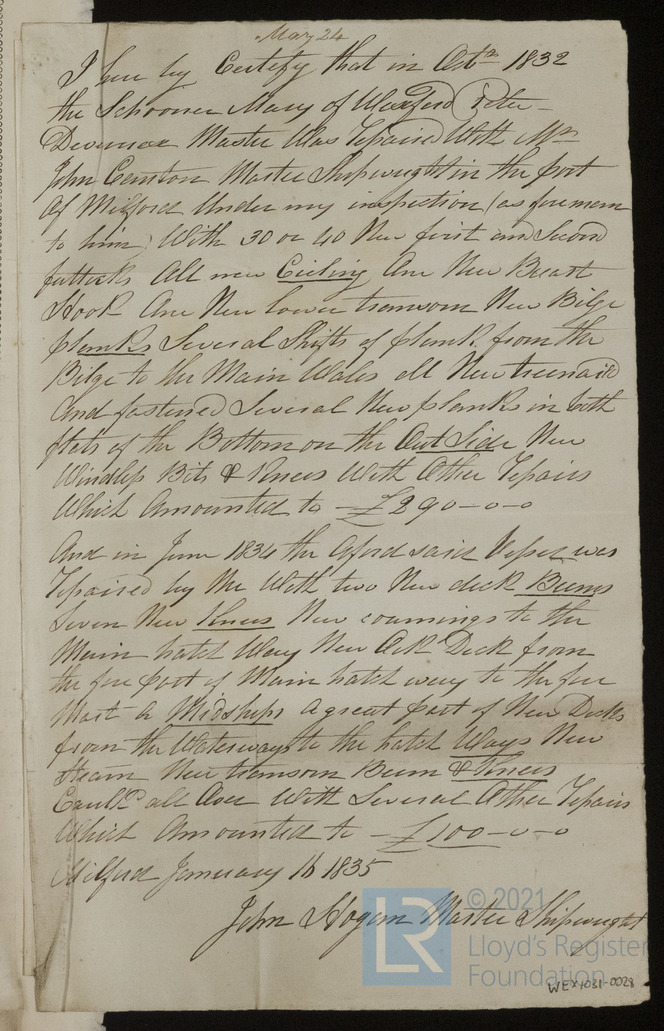 May 24
I here by Certify that in Octr 1832
the Schooner Mary of Wexford Peter
Devereux Master Was Repaired With Mr
John Master Shipwright in the port
of Milford Under my inspection (as foreman
to him) With 30 or 40 New first and Second
futtocks All new Cieling One New Breast
Hook One New lower transom New Bilge
planks Several Shifts of plank from the
Bilge to the Main Wales all New treenaild
And fastened Several New planks in both
flats of the Bottom on the Out Side New
Windlss Bits & Knees With Other Repairs
Which Amounted to £290-0-0
And in June 1834 the Aford said Vessel was
Repaired by Me With two New deck Beems
Seven New Knees New coamings to the
Main hatch Way New Oak Deck from
the fore Part of Main hatch way to the fore
Mast a Midships a great part of New Decks
from the Waterways to the hatch Ways New
Steam New transom Beem & Knees
Caulkd all Over With Several Other Repairs
Which Amounted to £100-0-0
Milford January 16 1835
John Hogan Master Shipwright
LR
© 2021
Lloyd's Register
Foundation
WEX+031-0028